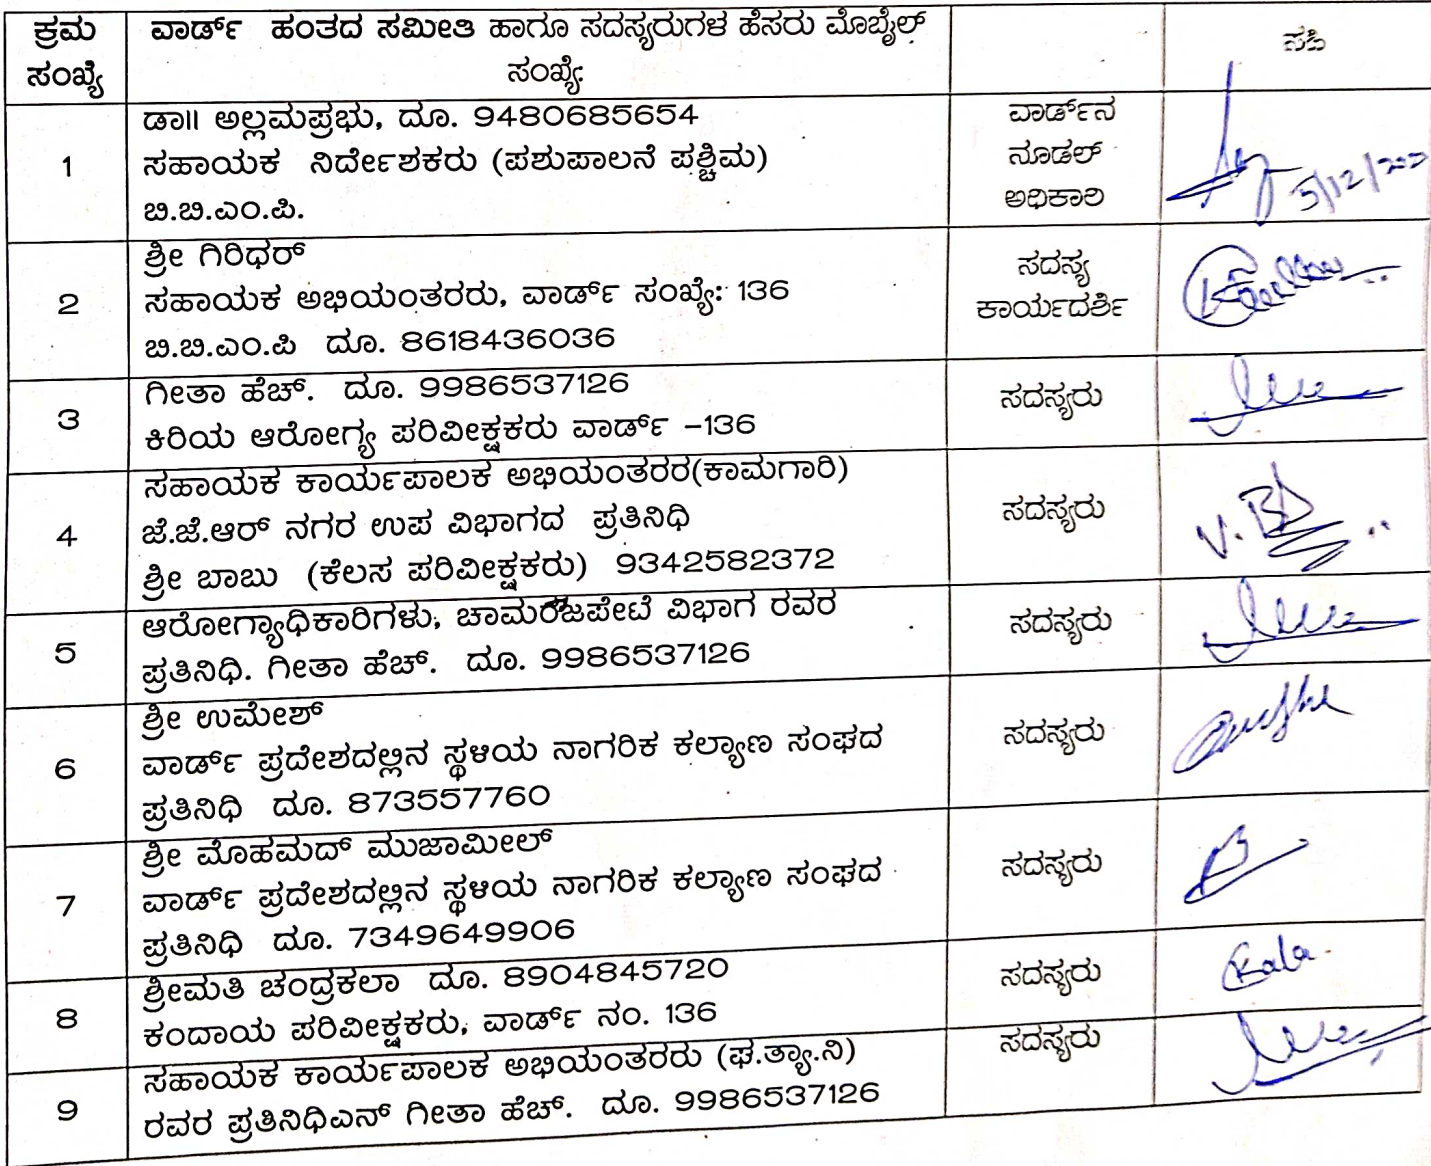 ಕ್ರಮ ಸಂಖ್ಯೆ	ವಾರ್ಡ್ ಹಂತದ ಸಮಿತಿ ಹಾಗೂ ಸದಸ್ಯರುಗಳ ಹೆಸರು ಮೊಬೈಲ್ ಸಂಖ್ಯೆ	ಸಹಿ
ಡಾ|| ಅಲ್ಲಮಪ್ರಭು, ದೂ. 9480685654
1 ಸಹಾಯಕ ನಿರ್ದೇಶಕರು (ಪಶುಪಾಲನೆ ಪಶ್ಚಿಮ)
ಬಿ.ಬಿ.ಎಂ.ಪಿ.
ವಾರ್ಡ್‌ನ
ನೂಡಲ್
ಅಧಿಕಾರಿ
ಶ್ರೀ ಗಿರಿಧರ್
2 ಸಹಾಯಕ ಅಭಿಯಂತರರು, ವಾರ್ಡ್ ಸಂಖ್ಯೆ: 136
ಬಿ.ಬಿ.ಎಂ.ಪಿ ದೂ. 8618436036
ಸದಸ್ಯ
ಕಾರ್ಯದರ್ಶಿ
ಗೀತಾ ಹೆಚ್. ದೂ. 9986537126
3 ಕಿರಿಯ ಆರೋಗ್ಯ ಪರಿವೀಕ್ಷಕರು ವಾರ್ಡ್ –136
ಸದಸ್ಯರು
ಸಹಾಯಕ ಕಾರ್ಯಪಾಲಕ ಅಭಿಯಂತರರ(ಕಾಮಗಾರಿ)
4 ಜೆ.ಜೆ.ಆರ್ ನಗರ ಉಪ ವಿಭಾಗದ ಪ್ರತಿನಿಧಿ
ಶ್ರೀ ಬಾಬು (ಕೆಲಸ ಪರಿವೀಕ್ಷಕರು) 9342582372
ಸದಸ್ಯರು
ಆರೋಗ್ಯಾಧಿಕಾರಿಗಳು, ಚಾಮರಾಜಪೇಟೆ ವಿಭಾಗ ರವರ
5 ಪ್ರತಿನಿಧಿ. ಗೀತಾ ಹೆಚ್. ದೂ. 9986537126
ಸದಸ್ಯರು
ಶ್ರೀ ಉಮೇಶ್
6 ವಾರ್ಡ್ ಪ್ರದೇಶದಲ್ಲಿನ ಸ್ಥಳಿಯ ನಾಗರಿಕ ಕಲ್ಯಾಣ ಸಂಘದ
ಪ್ರತಿನಿಧಿ ದೂ. 873557760
ಸದಸ್ಯರು
ಶ್ರೀ ಮೊಹಮದ್ ಮುಜಾಮೀಲ್
7 ವಾರ್ಡ್ ಪ್ರದೇಶದಲ್ಲಿನ ಸ್ಥಳಿಯ ನಾಗರಿಕ ಕಲ್ಯಾಣ ಸಂಘದ
ಪ್ರತಿನಿಧಿ ದೂ. 7349649906
ಸದಸ್ಯರು
ಶ್ರೀಮತಿ ಚಂದ್ರಕಲಾ ದೂ. 8904845720
8 ಕಂದಾಯ ಪರಿವೀಕ್ಷಕರು, ವಾರ್ಡ್ ನಂ. 136
ಸದಸ್ಯರು
Kala
ಸಹಾಯಕ ಕಾರ್ಯಪಾಲಕ ಅಭಿಯಂತರರು (ಘ.ತ್ಯಾ.ನಿ)
9 ರವರ ಪ್ರತಿನಿಧಿಎನ್ ಗೀತಾ ಹೆಚ್. ದೂ. 9986537126
ಸದಸ್ಯರು